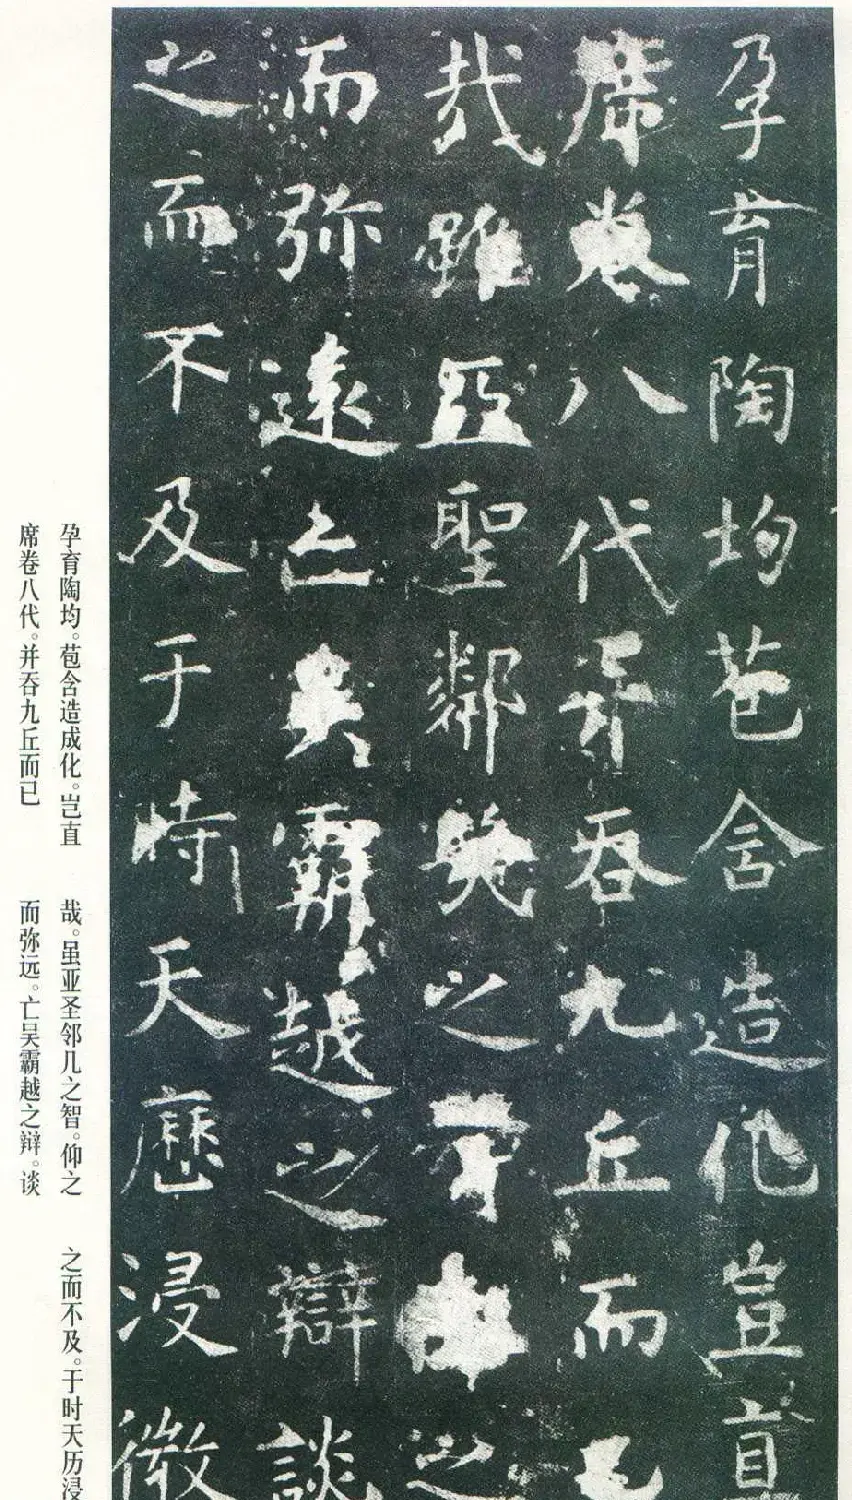 孕育陶均苞含造化豈直
席卷八代并吞九丘而已
哉雖亞聖鄰幾之智仰之
而弥遠亡吳霸越之辯談
之而不及于時天曆浸微
孕育陶均。苞含造成化。岂直
席卷八代。并吞九丘而已
哉。虽亚圣邻几之智。仰之
而弥远。亡吴霸越之辩。谈
之而不及。于时天历浸